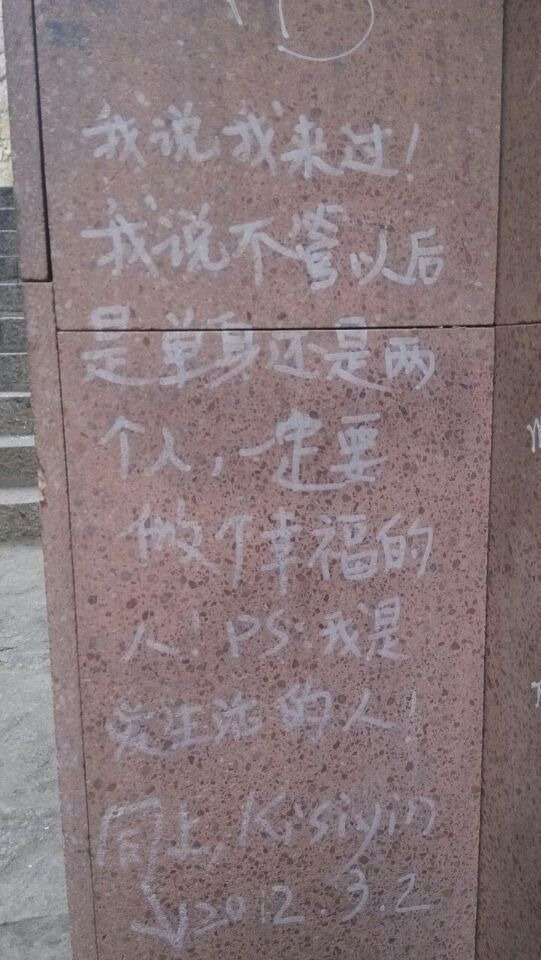 我说我来过！
我说不管以后
是单身还是两
个人，一定要
做个幸福的
人！PS：我是
爱生活的人！
同上，Kisiyin
2012.3.2